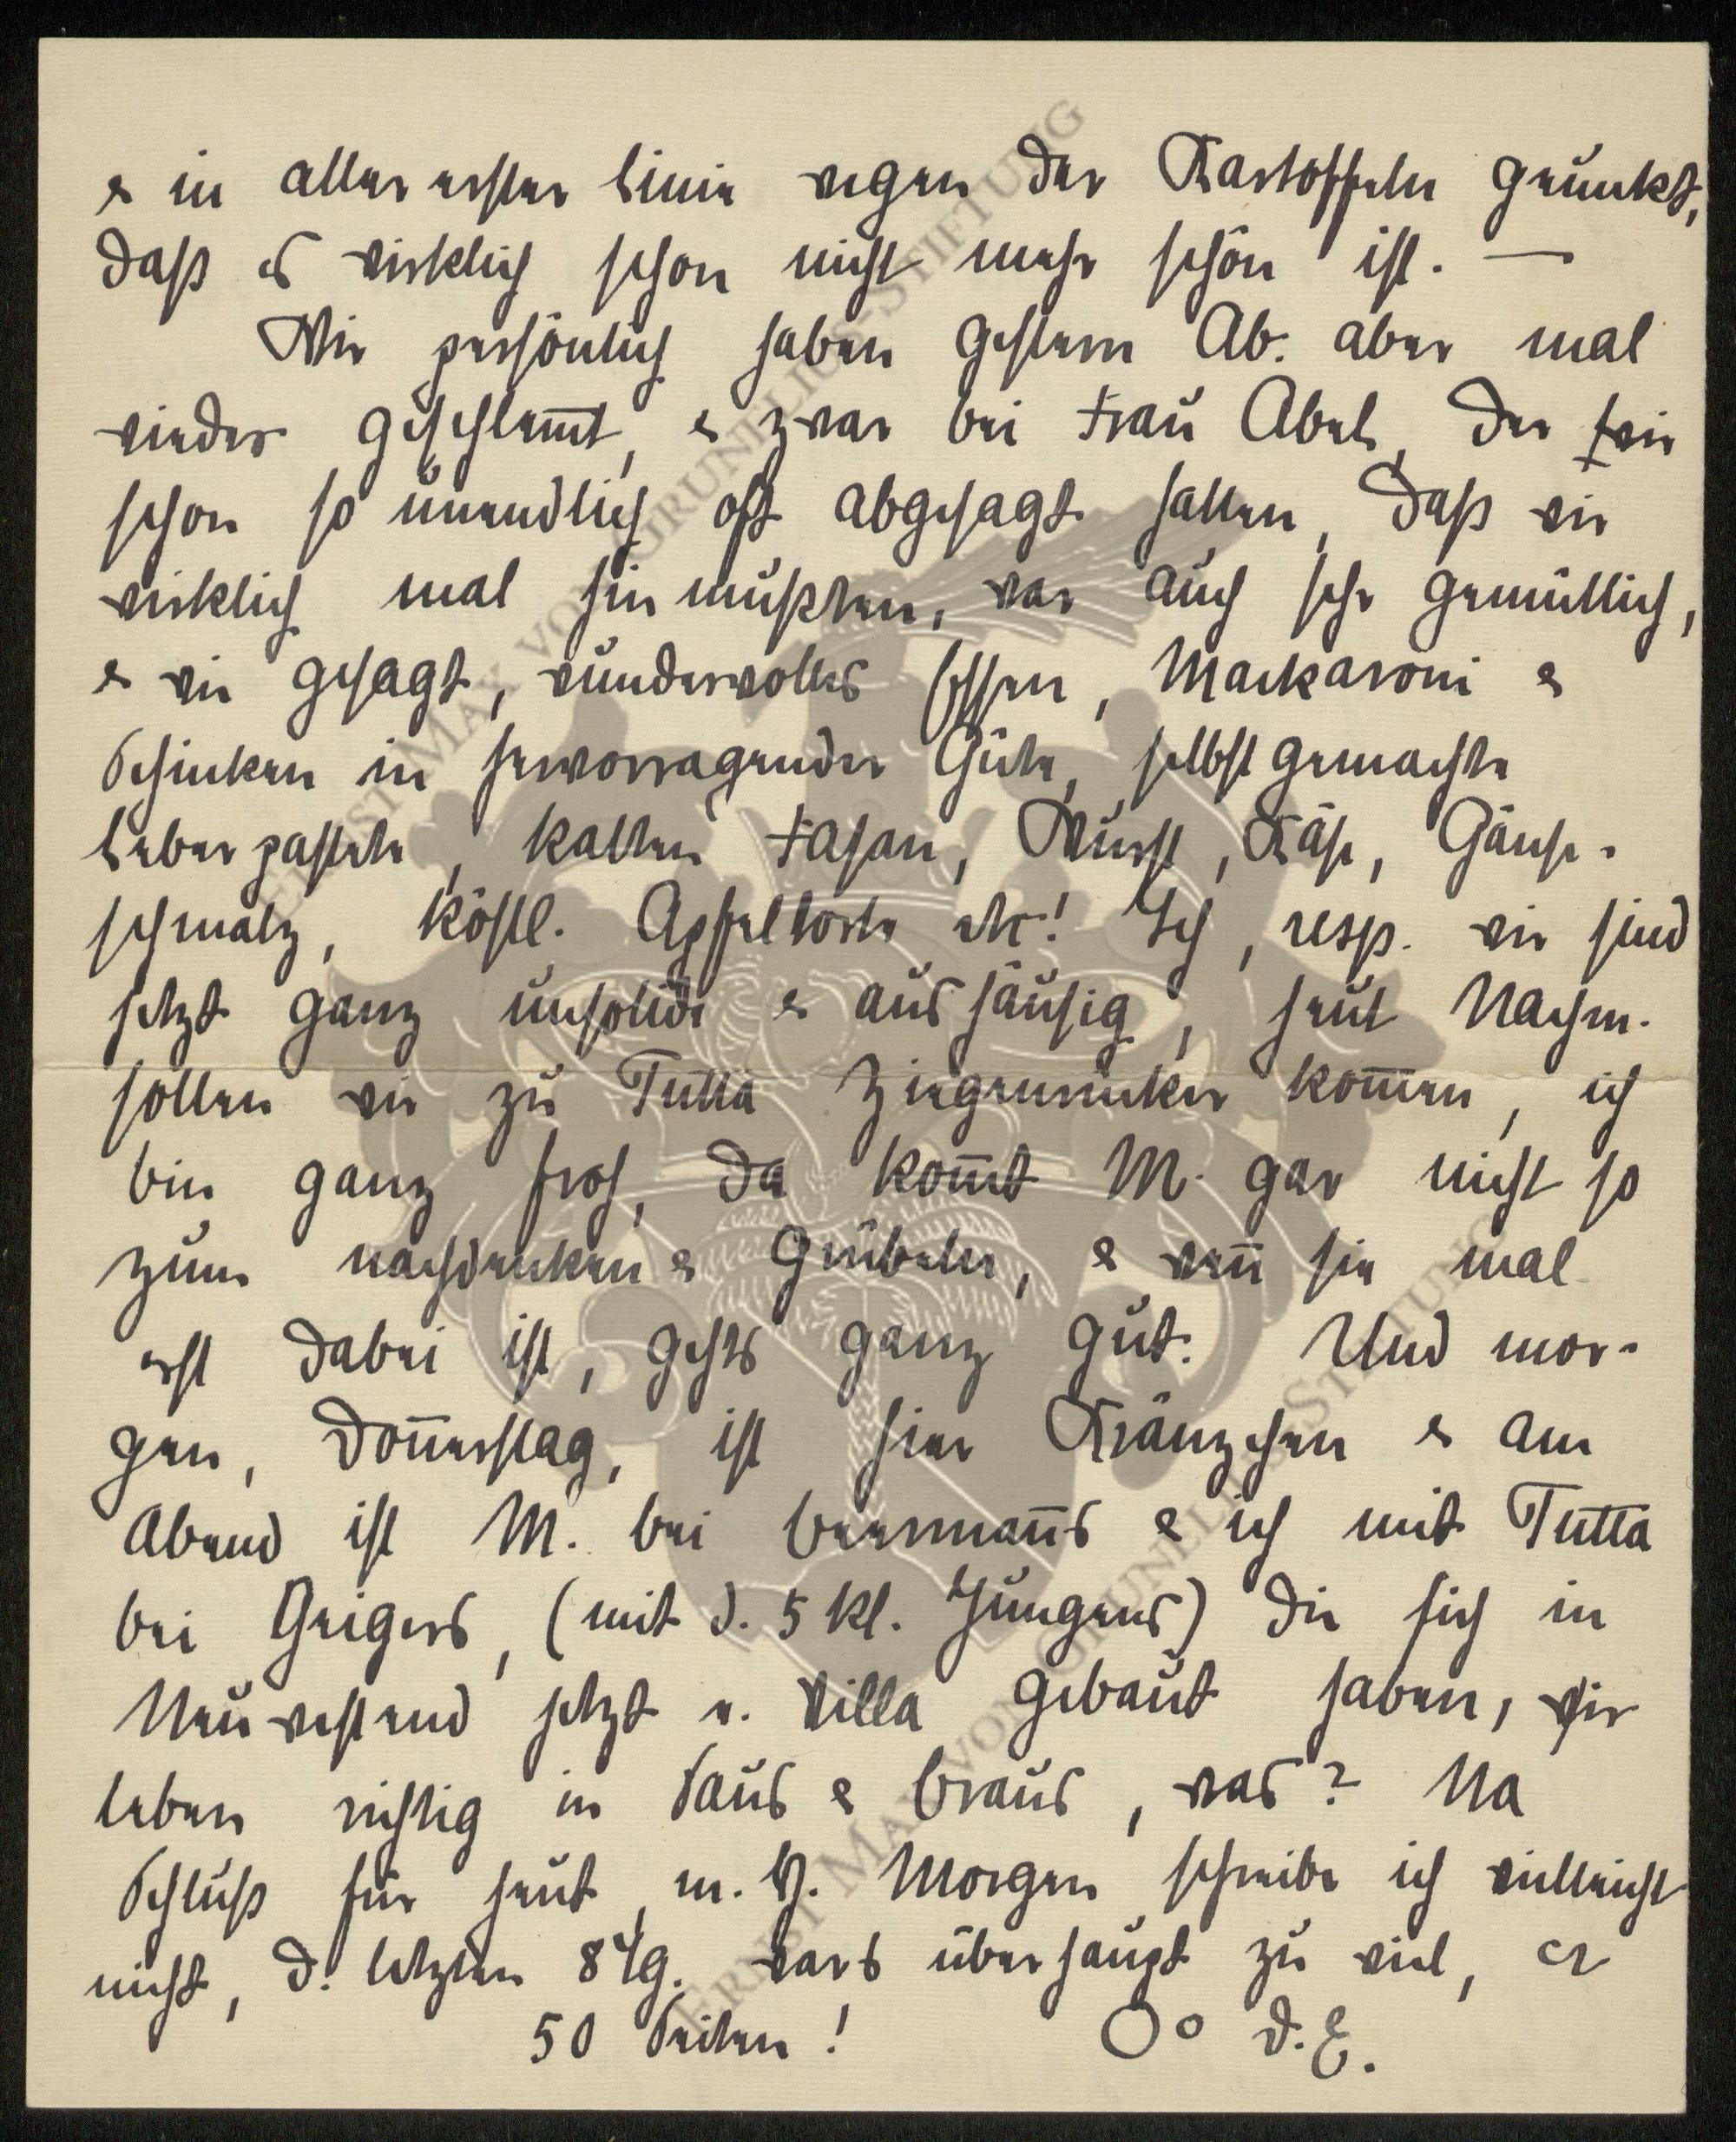 & in aller erster Linie wegen der Kartoffeln geunkt,
daß es wirklich schon nicht mehr schön ist. —
Wir persönlich haben gestern Ab. aber mal
wieder geschlem̅t, & zwar bei Frau Abels, der wir
schon so unendlich oft abgesagt hatten, daß wir
wirklich mal hin mußten, war auch sehr gemütlich,
& wie gesagt, wundervolles Essen, Mackaroni &
Schinken in hervorragender Güte, selbst gemachte
Leberpastete, kalten Fasan, Wurst, Käse, Gänse-
schmalz, köstl. Apfeltorte etc! Ich, resp. wir sind
jetzt ganz unsolide & aushäusig, heut Nachm.
sollen wir zu Tutta Ziegenrücker kom̅en, ich
bin ganz froh, da kom̅t M. gar nicht so
zum nachdenken & Grübeln, & wen̅ sie mal
erst dabei ist, gehts ganz gut. Und mor-
gen, Don̅erstag, ist hier Kränzchen & am
Abend ist M. bei Beerman̅s & ich mit Tutta
bei Geigers, (mit d. 5 kl. Jungens) die sich in
Neuwestend jetzt e. Villa gebaut haben, wir
leben richtig in Saus & Braus, was? Na
Schluß für heut, m. H. Morgen schreibe ich vielleicht
nicht, d. letzten 8 Tg. wars überhaupt zu viel, ca
50 Seiten! Oo D. E.
ERNST MAX VON GRUNELIUS-STIFTUNG
ERNST MAX VON GRUNELIUS-STIFTUNG